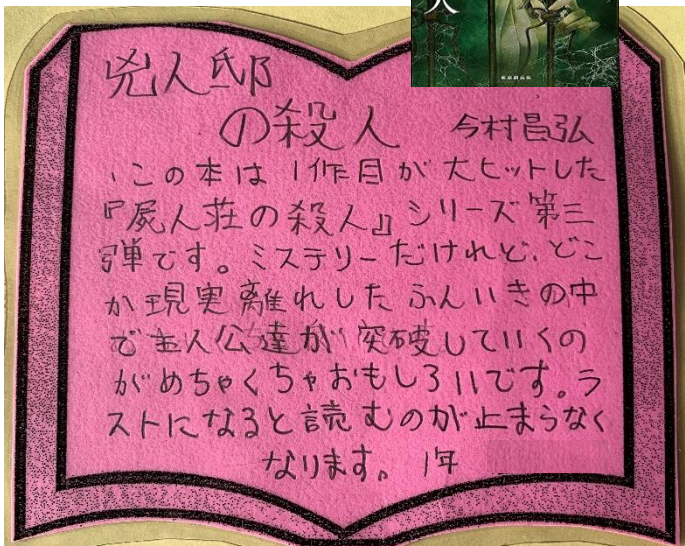 人
東京創元社
兇人邸
の殺人 今村昌弘
この本は1作目が大ヒットした
『屍人荘の殺人』シリーズ第三
弾です。ミステリーだけれど、どこ
か現実離れしたふんいきの中
で主人公達が突破していくの
がめちゃくちゃおもしろいです。ラ
ストになると読むのが止まらなく
なります。 1年